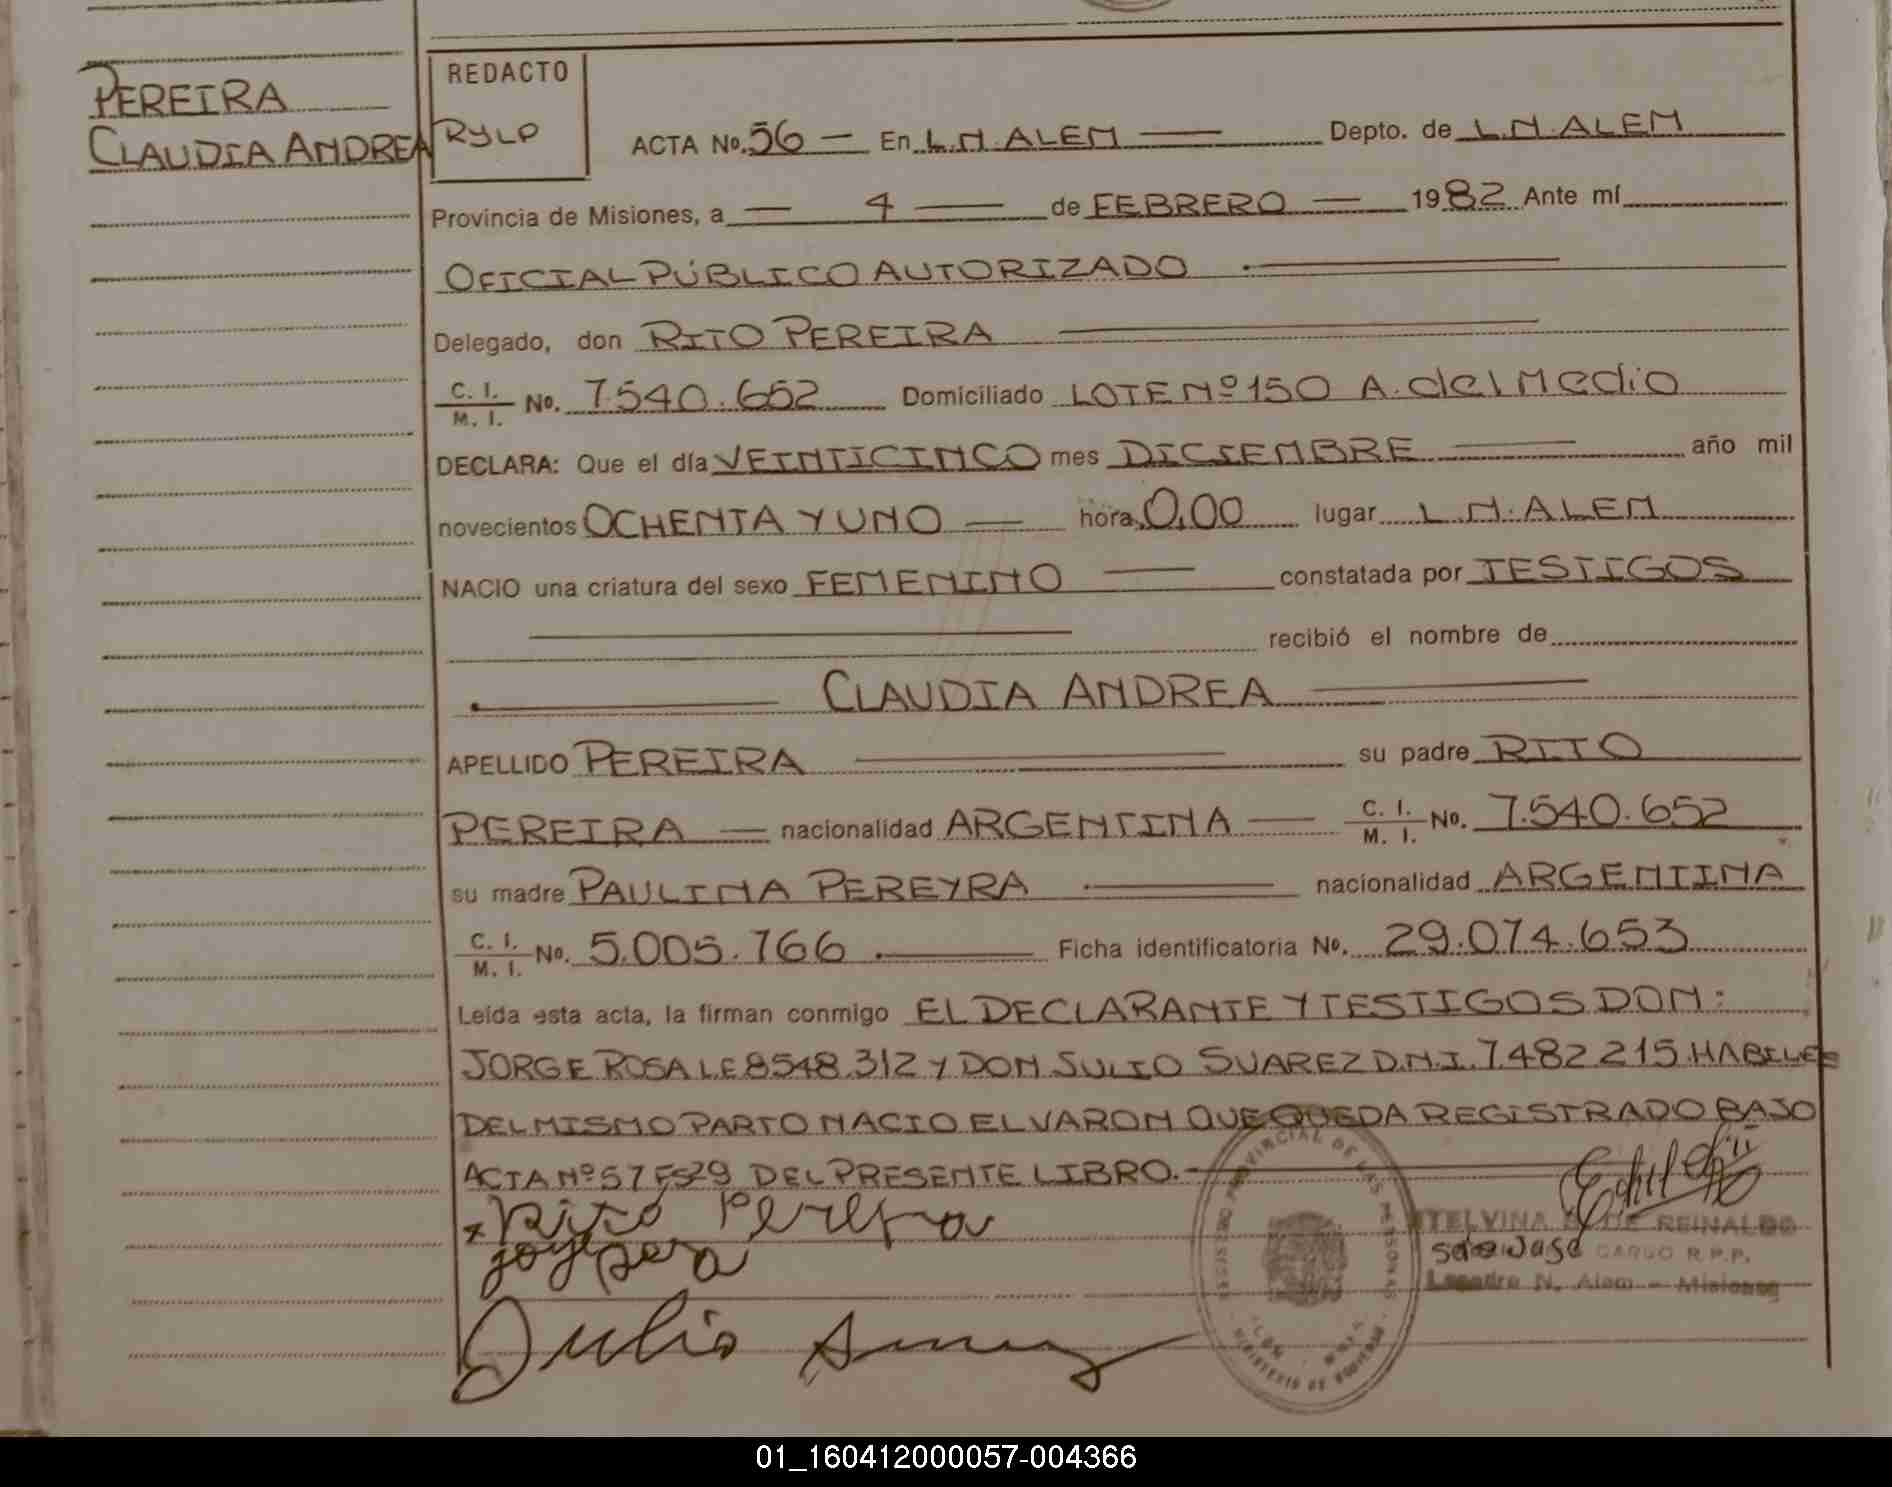 PEREIRA
CLAUDIA ANDREA
REDACTO
RYLP
ACTA No. 56 — En L.N. ALEM — Depto. de L.N. ALEM
Provincia de Misiones, a — 4 — de FEBRERO — 1982 Ante mí
OFICIAL PÚBLICO AUTORIZADO
Delegado, don RITO PEREIRA
C. I. / M. I. No. 7.540.652 Domiciliado LOTE Nº 150 A. del Medio
DECLARA: Que el día VEINTICINCO mes DICIEMBRE — año mil
novecientos OCHENTA Y UNO — hora 0,00 lugar L.N. ALEM
NACIO una criatura del sexo FEMENINO — constatada por TESTIGOS
— recibió el nombre de
CLAUDIA ANDREA
APELLIDO PEREIRA — su padre RITO
PEREIRA — nacionalidad ARGENTINA — C. I. / M. I. No. 7.540.652
su madre PAULINA PEREYRA — nacionalidad ARGENTINA
C. I. / M. I. No. 5.005.766 — Ficha identificatoria No. 29.074.653
Leída esta acta, la firman conmigo EL DECLARANTE Y TESTIGOS DON:
JORGE ROSA LE 8548.312 Y DON JULIO SUAREZ D.N.I. 7.482 215. HABILES
DEL MISMO PARTO NACIO EL VARON QUE QUEDA REGISTRADO BAJO
ACTA Nº 57 FS 29 DEL PRESENTE LIBRO.—
x Rito Pereira
Julio Suarez
REGISTRO PROVINCIAL DE LAS PERSONAS
MINISTERIO DE GOBIERNO
REINALDO
CARGO R.P.P.
Leandro N. Alem - Misiones
01_160412000057-004366